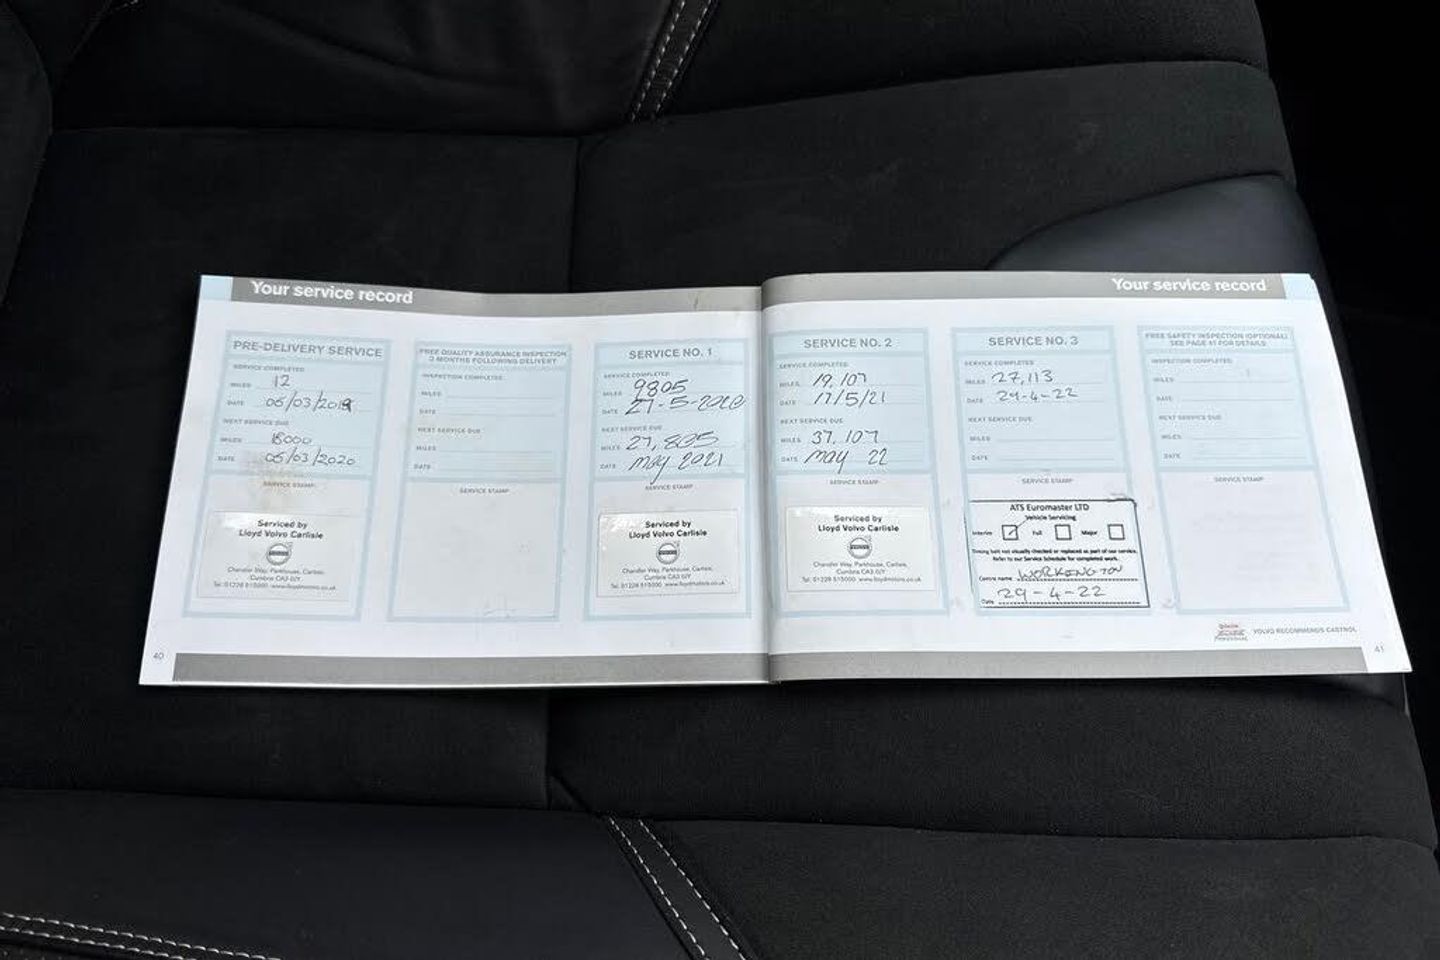 Your service record
PRE-DELIVERY SERVICE
SERVICE COMPLETED:
MILES 12
DATE 05/03/2019
NEXT SERVICE DUE:
MILES 18000
DATE 05/03/2020
SERVICE STAMP:
Serviced by
Lloyd Volvo Carlisle
Chandler Way, Parkhouse, Carlisle,
Cumbria CA3 0JY
Tel: 01228 515000 www.lloydmotors.co.uk
40
FREE QUALITY ASSURANCE INSPECTION
3 MONTHS FOLLOWING DELIVERY
INSPECTION COMPLETED:
MILES
DATE
NEXT SERVICE DUE
MILES
DATE
SERVICE STAMP
SERVICE NO. 1
SERVICE COMPLETED:
MILES 9805
DATE 21-5-2020
NEXT SERVICE DUE:
MILES 27,805
DATE May 2021
SERVICE STAMP
Serviced by
Lloyd Volvo Carlisle
Chandler Way, Parkhouse, Carlisle,
Cumbria CA3 0JY
Tel: 01228 515000 www.lloydmotors.co.uk
Your service record
SERVICE NO. 2
SERVICE COMPLETED:
MILES 19,107
DATE 17/5/21
NEXT SERVICE DUE:
MILES 37,107
DATE May 22
SERVICE STAMP
Serviced by
Lloyd Volvo Carlisle
Chandler Way, Parkhouse, Carlisle,
Cumbria CA3 0JY
Tel: 01228 515000 www.lloydmotors.co.uk
SERVICE NO. 3
SERVICE COMPLETED:
MILES 27,113
DATE 29-4-22
NEXT SERVICE DUE:
MILES
DATE
SERVICE STAMP
ATS Euromaster LTD
Vehicle Servicing
Interim Full Major
Timing belt not visually checked or replaced as part of our service.
Refer to our Service Schedule for completed work.
Centre name WORKINGTON
Date 29-4-22
FREE SAFETY INSPECTION (OPTIONAL)
SEE PAGE 41 FOR DETAILS
INSPECTION COMPLETED:
MILES
DATE
NEXT SERVICE DUE:
MILES
DATE
SERVICE STAMP
VOLVO RECOMMENDS CASTROL
41